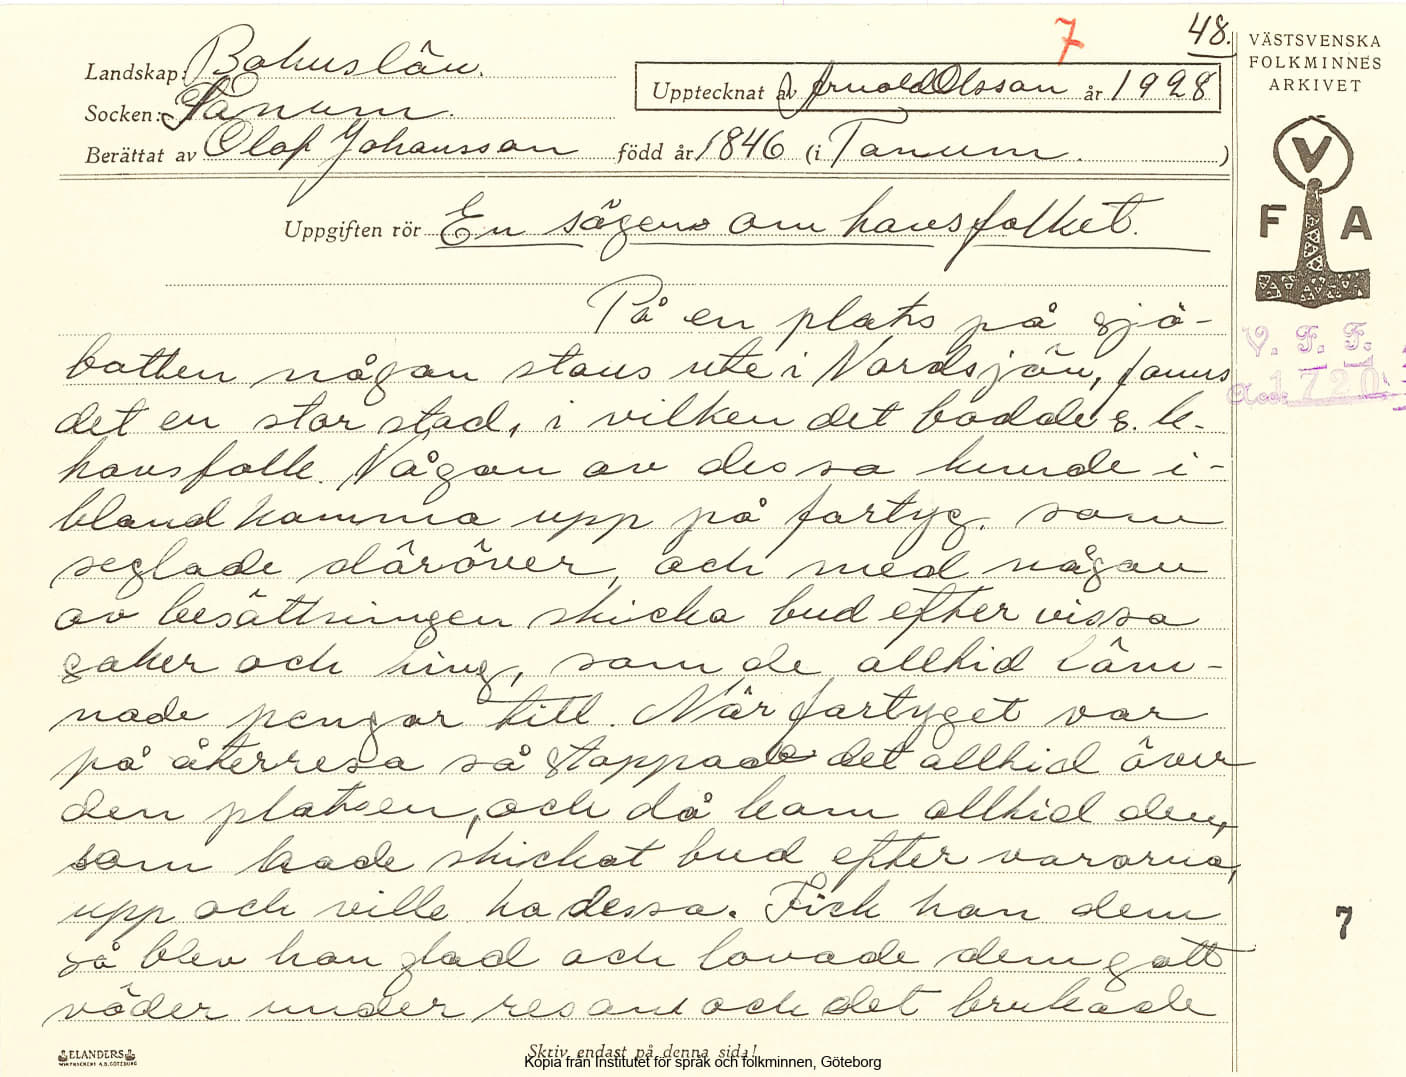 7
48.
Landskap: Bohuslän.
Socken: Tanum.
Berättat av Olof Johansson född år 1846 (i Tanum. )
Upptecknat av Arnold Olsson år 1928
VÄSTSVENSKA
FOLKMINNES
ARKIVET
V
F A
Uppgiften rör En sägen om havsfolket.
På en plats på sjö-
botten någon stans ute i Nordsjön, fanns
det en stor stad, i vilken det bodde s. k.
havsfolk. Någon av dessa kunde i-
bland komma upp på fartyg, som
seglade däröver, och med någon
av besättningen skicka bud efter vissa
saker och ting, som de alltid läm-
nade pengar till. När fartyget var
på återresa så stoppade det alltid över
den platsen, och då kom alltid den,
som hade skickat bud efter varorna,
upp och ville ha dessa. Fick han dem
så blev han glad och lovade dem gott
väder under resan och det brukade
V. F. F.
Acc. 1720
7
ELANDERS
Skriv endast på denna sida!
Kopia från Institutet för språk och folkminnen, Göteborg